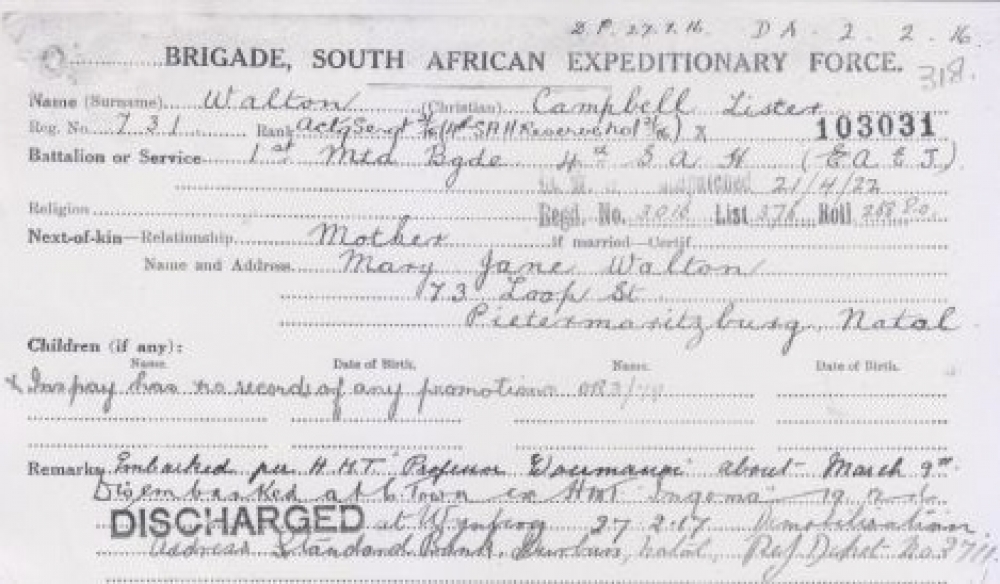 D.P. 27.7.16. D A . 2 . 2 . 16
BRIGADE, SOUTH AFRICAN EXPEDITIONARY FORCE. 318.
Name (Surname) Walton (Christian) Campbell Lister
Reg. No. 731 Rank Actg Sergt X 103031
Battalion or Service 1st Mtd Bgde 4th S A H (E A & J)
21/4/22
Religion Regd. No. List 276 Roll
Next-of-kin—Relationship Mother If married—Certif.
Name and Address Mary Jane Walton
173 Loop St
Pietermaritzburg Natal
Children (if any):
Name. Date of Birth. Name. Date of Birth.
x Inspay has no records of any promotions
Remarks Embarked per H.M.T. "Professor about March 9th
Disembarked at C. Town ex HMT "Ingoma"
DISCHARGED at Wynberg 27 2.17 Demobilisation
Address Standard Bank, Durban, Natal, Ref Depot No.